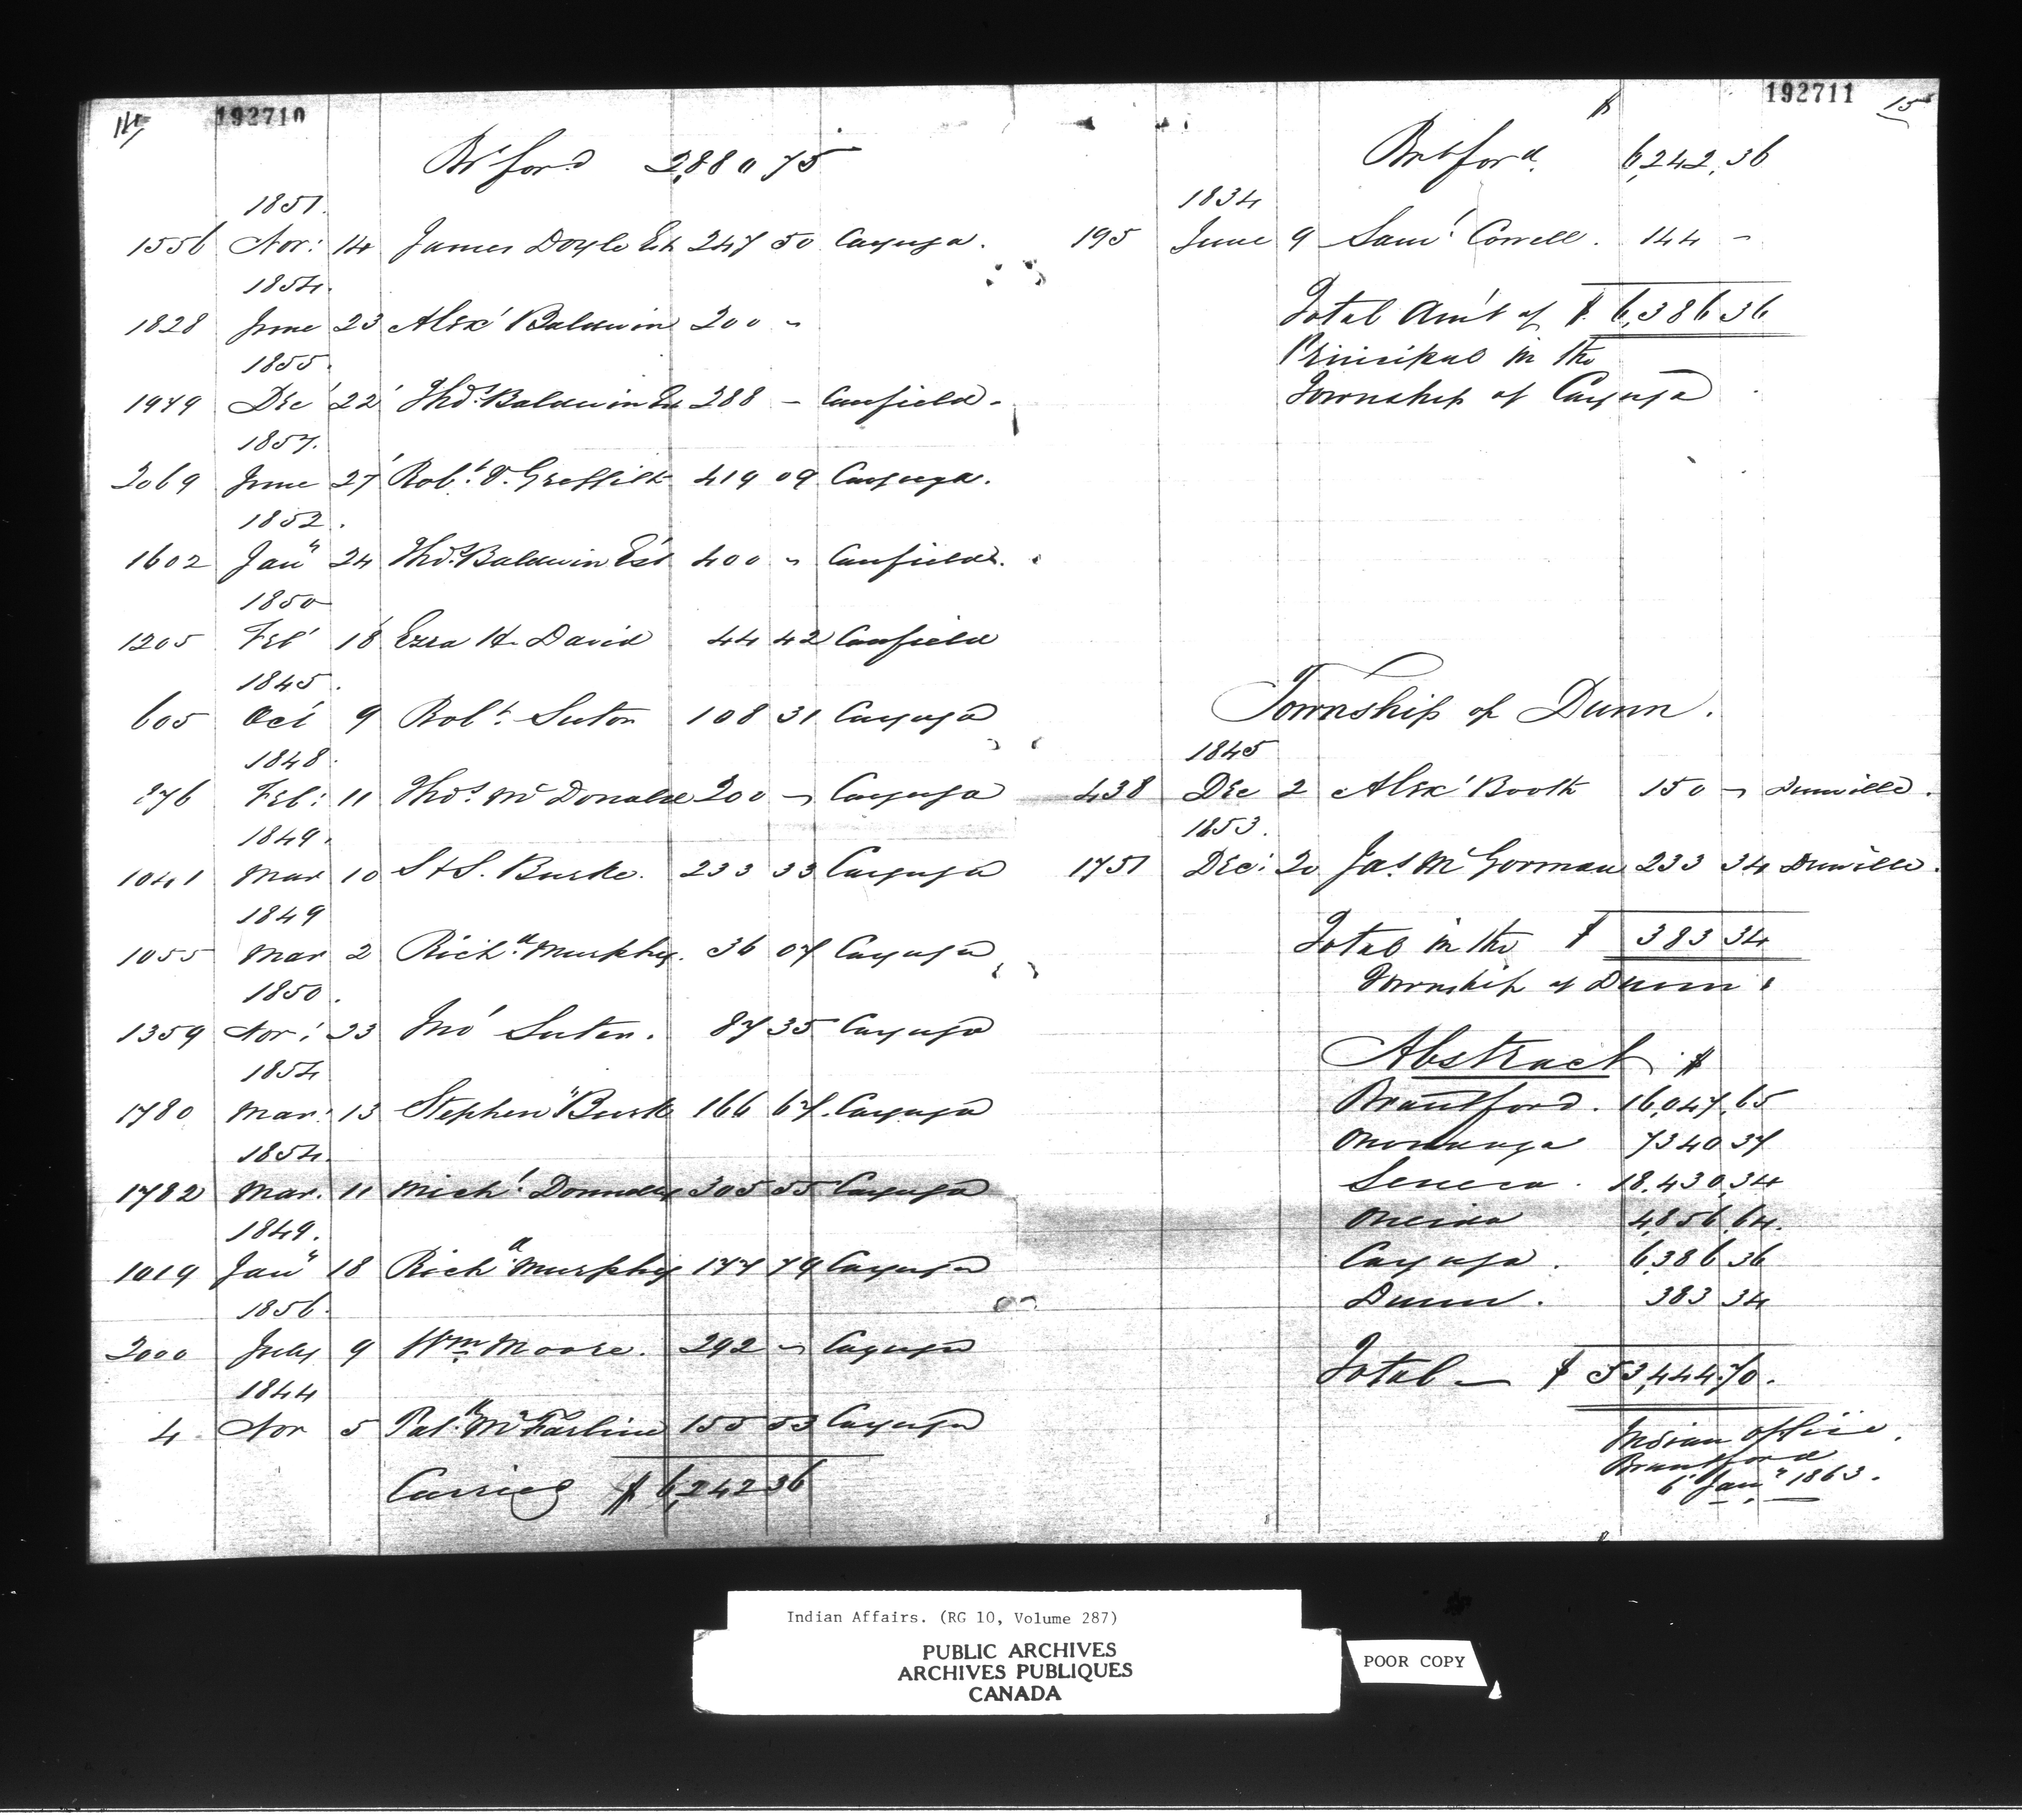 14
192710
Bt ford 2,880 75
1851.
1556 Nov: 14 James Doyle Est 247 50 Cayuga.
1854.
1828 June 23 Alex' Baldwin 200 -
1855.
1979 Dec' 22' Thos. Baldwin Est 288 - Canfield.
1857.
2069 June 27' Robt. V. Griffith 419 09 Cayuga.
1852.
1602 Jany 24 Thos. Baldwin Est 400 - Canfield.
1850
1205 Feb' 18' Ezra H. David 44 42 Canfield
1845.
605 Oct 9 Robt. Suton 108 31 Cayuga
1848.
876 Feb: 11 Thos. McDonald 200 - Cayuga
1849.
1041 Mar 10 S & S. Burke. 233 33 Cayuga
1849
1055 Mar 2 Richd. Murphy. 36 07 Cayuga
1850.
1359 Nov' 23 Jno' Suton. 87 35 Cayuga
1854
1780 Mar: 13 Stephen Burk 166 67. Cayuga
1854.
1782 Mar. 11 Mich'l Donnelly 305 55 Cayuga
1849.
1019 Jany 18 Richd. Murphy 177 79 Cayuga
1856.
2000 July 9 Wm Moore. 292 - Cayuga
1844
4 Nov 5 Patk. McFarline 155 53 Cayuga
Carried $ 6,242 36
192711 15
$
Brt ford. 6,242.36
1834
195 June 9 Sam'l Correll. 144 -
Total Am't of $ 6,386 36
Principal in the
Township of Cayuga
Township of Dunn.
1845
438 Dec 2 Alex' Booth 150 - Dunville.
1853.
1751 Dec: 20 Jas. McGorman 233 34 Dunville.
Total in the $ 383 34
Township of Dunn.
Abstract $
Brantford. 16,047.65
Onondaga 7340 37
Seneca. 18,430.34
Oneida 4,856.64.
Cayuga. 6,386 36
Dunn. 383 34
Total - $ 53,444.70.
Indian Office,
Brantford
6 Jany 1863.
Indian Affairs. (RG 10, Volume 287)
PUBLIC ARCHIVES
ARCHIVES PUBLIQUES
CANADA
POOR COPY